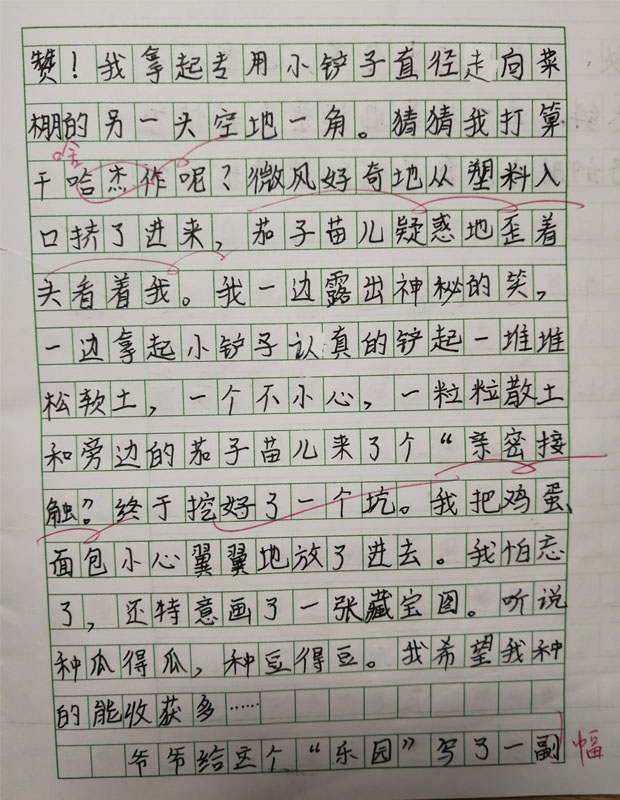 赞！我拿起专用小铲子直径走向菜
棚的另一头空地一角。猜猜我打算
啥
干哈杰作呢？微风好奇地从塑料入
口挤了进来，茄子苗儿疑惑地歪着
头看着我。我一边露出神秘的笑，
一边拿起小铲子认真的铲起一堆堆
松软土，一个不小心，一粒粒散土
和旁边的茄子苗儿来了个“亲密接
触？终于挖好了一个坑。我把鸡蛋
面包小心翼翼地放了进去。我怕忘
了，还特意画了一张藏宝图。听说
种瓜得瓜，种豆得豆。我希望我种
的能收获多……
爷爷给这个“乐园”写了一副
幅